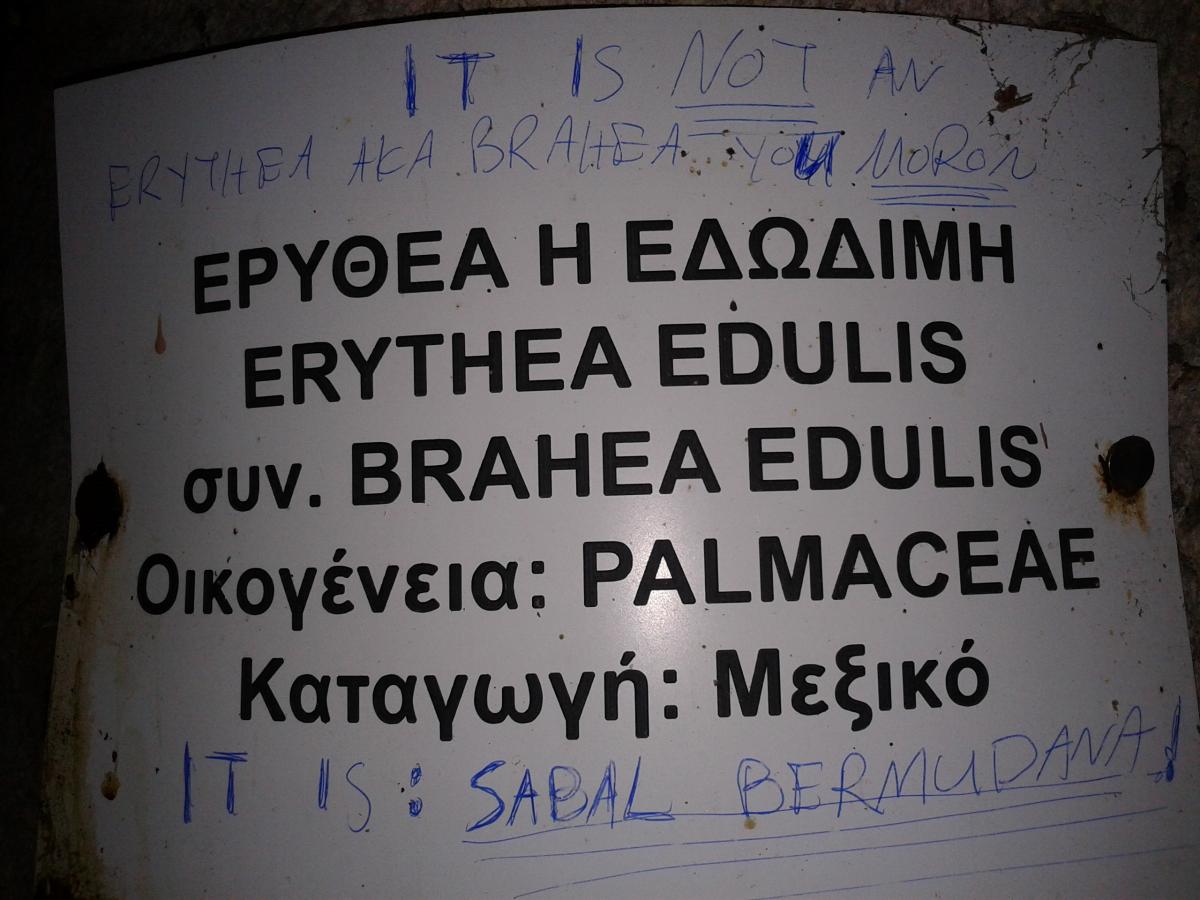 IT IS NOT AN
ERYTHEA AKA BRAHEA YOU MORON
ΕΡΥΘΕΑ Η ΕΔΩΔΙΜΗ
ERYTHEA EDULIS
συν. BRAHEA EDULIS
Οικογένεια: PALMACEAE
Καταγωγή: Μεξικό
IT IS: SABAL BERMUDANA!